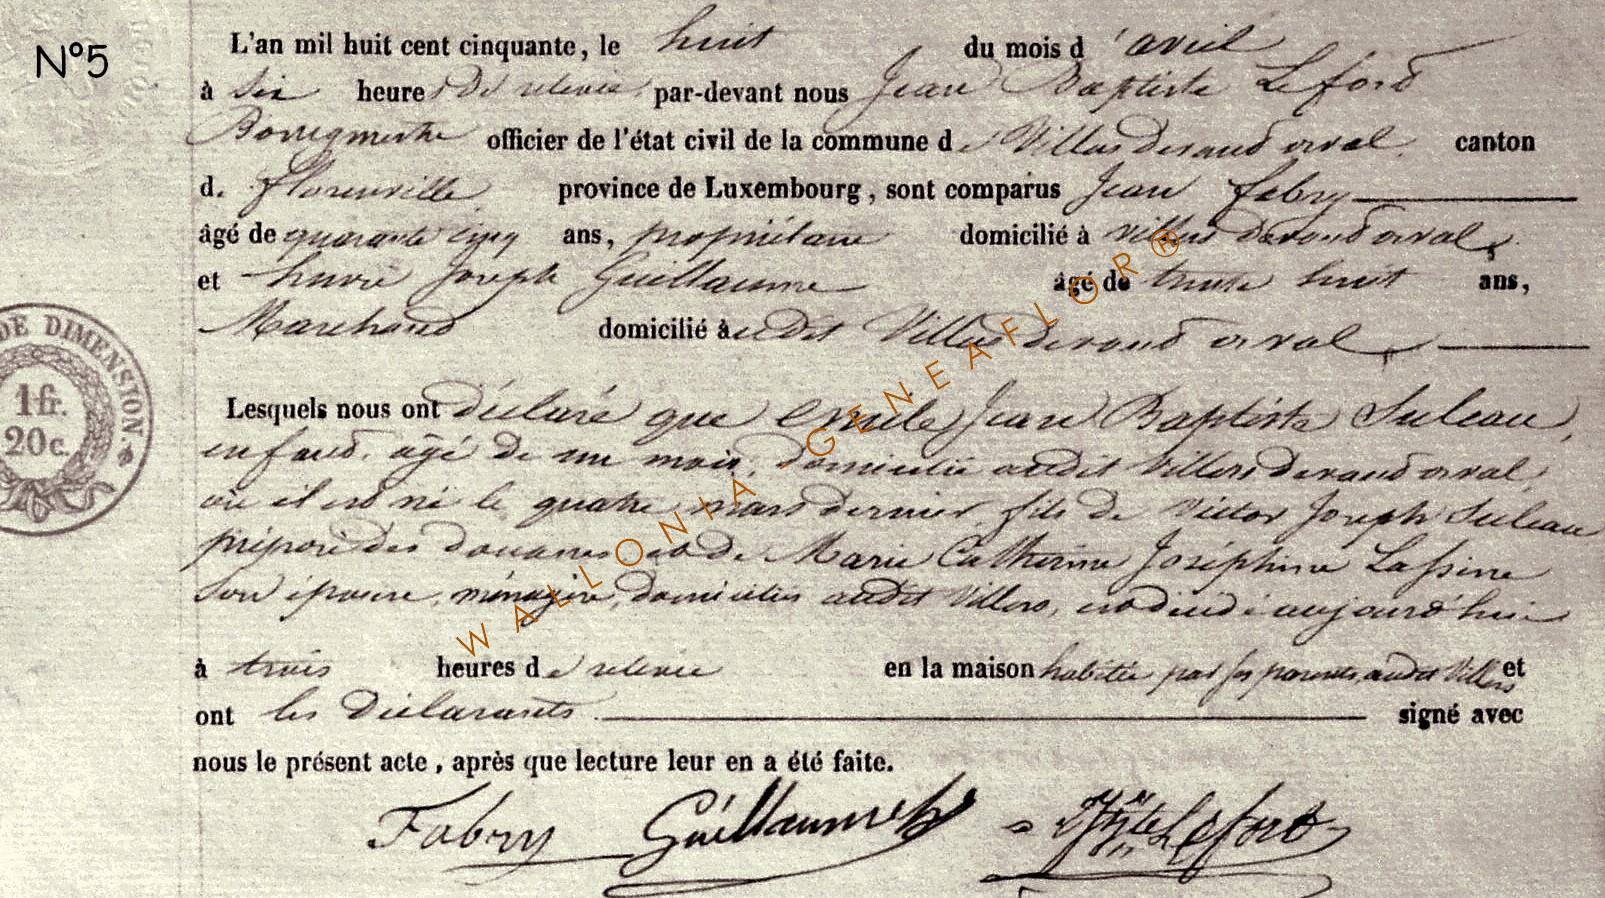 N°5
L'an mil huit cent cinquante, le huit du mois d'avril
à six heures De relevée, par-devant nous Jean Baptiste Lefort
Bourgmestre officier de l'état civil de la commune de Villers devant orval. canton
d. florenville province de Luxembourg, sont comparus Jean fabry
âgé de quarante cinq ans, propriétaire domicilié à villers devant orval,
et henri Joseph Guillaume âgé de trente huit ans,
Marchand domicilié à audit Villers devant orval,
Lesquels nous ont déclaré que Emile Jean Baptiste Suleau,
enfant, agé de un mois, domicilié audit Villers devant orval,
où il est né le quatre mars dernier, fils de Victor Joseph Suleau
préposé des douanes et de Marie Catherine Joséphine Lassine
son épouse, ménagère, domiciliés audit Villers, est décédé aujourd'hui
à trois heures de relevée en la maison habitée par ses parents, audit Villers et
ont les Déclarants signé avec
nous le présent acte, après que lecture leur en a été faite.
Fabry Guillaume Lefort
DE DIMENSION.
1fr.
20c.
WALLONIA GENEAFLOR®